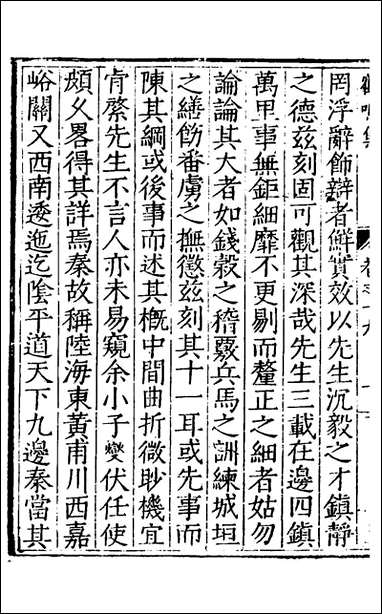 罔浮辭飾辯者鮮實效以先生沉毅之才鎮靜
之德兹刻固可觀其深哉先生三載在邊四鎮
萬里事無鉅細靡不更剔而釐正之細者姑勿
論論其大者如錢穀之稽覈兵馬之訓練城垣
之繕飭番虜之撫懲兹刻其十一耳或先事而
陳其綱或後事而述其槪中間曲折微眇機宜
肯綮先生不言人亦未易窺余小子燮伏任使
頗久畧得其詳焉秦故稱陸海東黃甫川西嘉
峪關又西南逶迤迄陰平道天下九邊秦當其